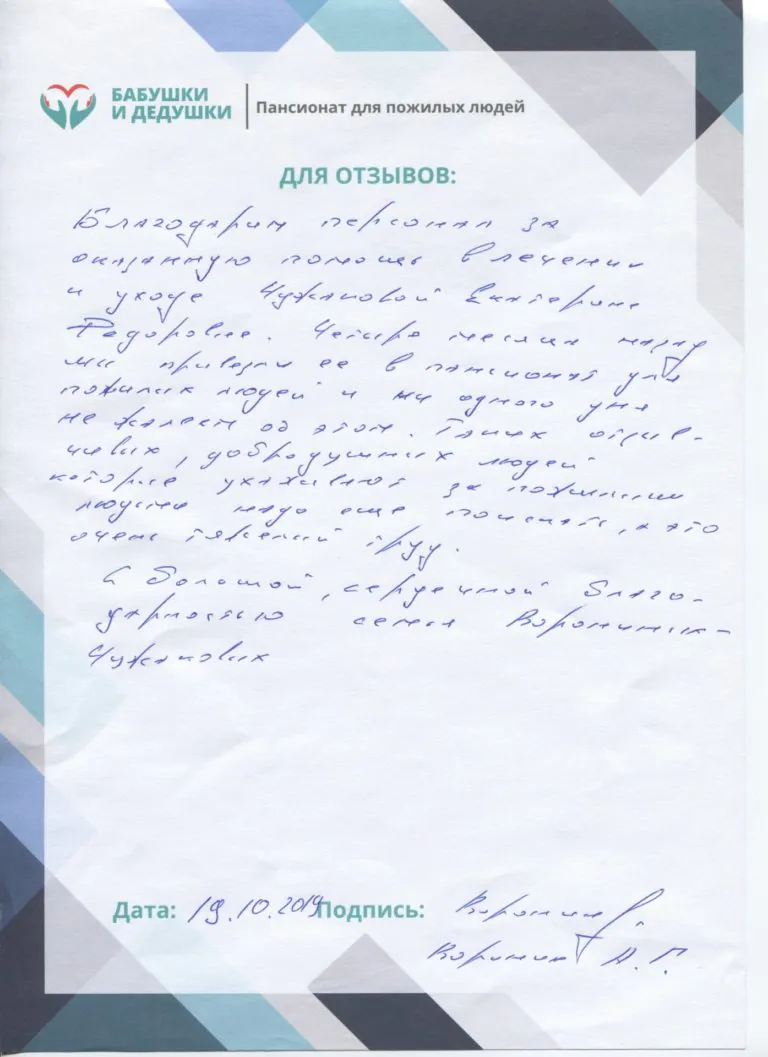 БАБУШКИ
И ДЕДУШКИ
Пансионат для пожилых людей
ДЛЯ ОТЗЫВОВ:
Благодарим персонал за
оказанную помощь в лечении
и уходе Чужановой Екатерине
Федоровне. Четыре месяца назад
мы привезли ее в пансионат для
пожилых людей и ни одного дня
не жалеем об этом. Таких отзыв-
чивых, добродушных людей
которые ухаживают за пожилыми
людьми надо еще поискать, а это
очень тяжелый труд.
С большой, сердечной благо-
дарностью семья Ворониных-
Чужановых
Дата: 19.10.2019 Подпись:
Воронин А. Г.